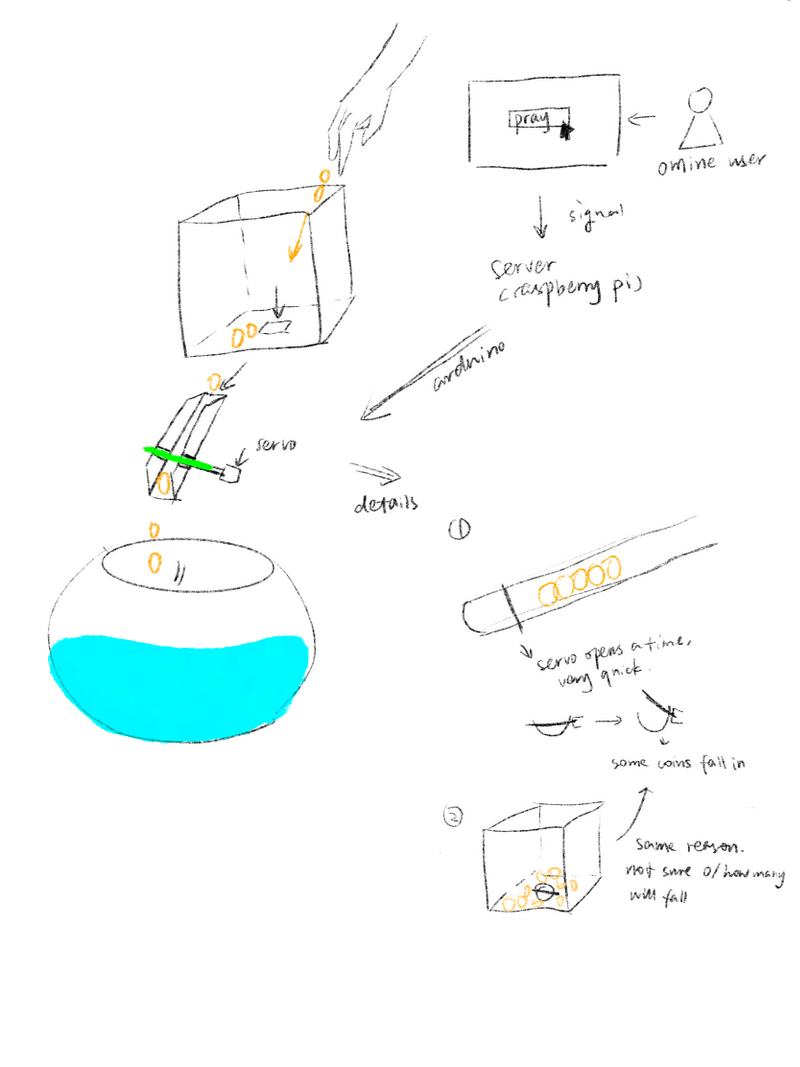 pray
online user
signal
server
(raspberry pi)
arduino
servo
details
①
servo opens a time,
very quick.
some coins fall in
②
same reason.
not sure 0/how many
will fall